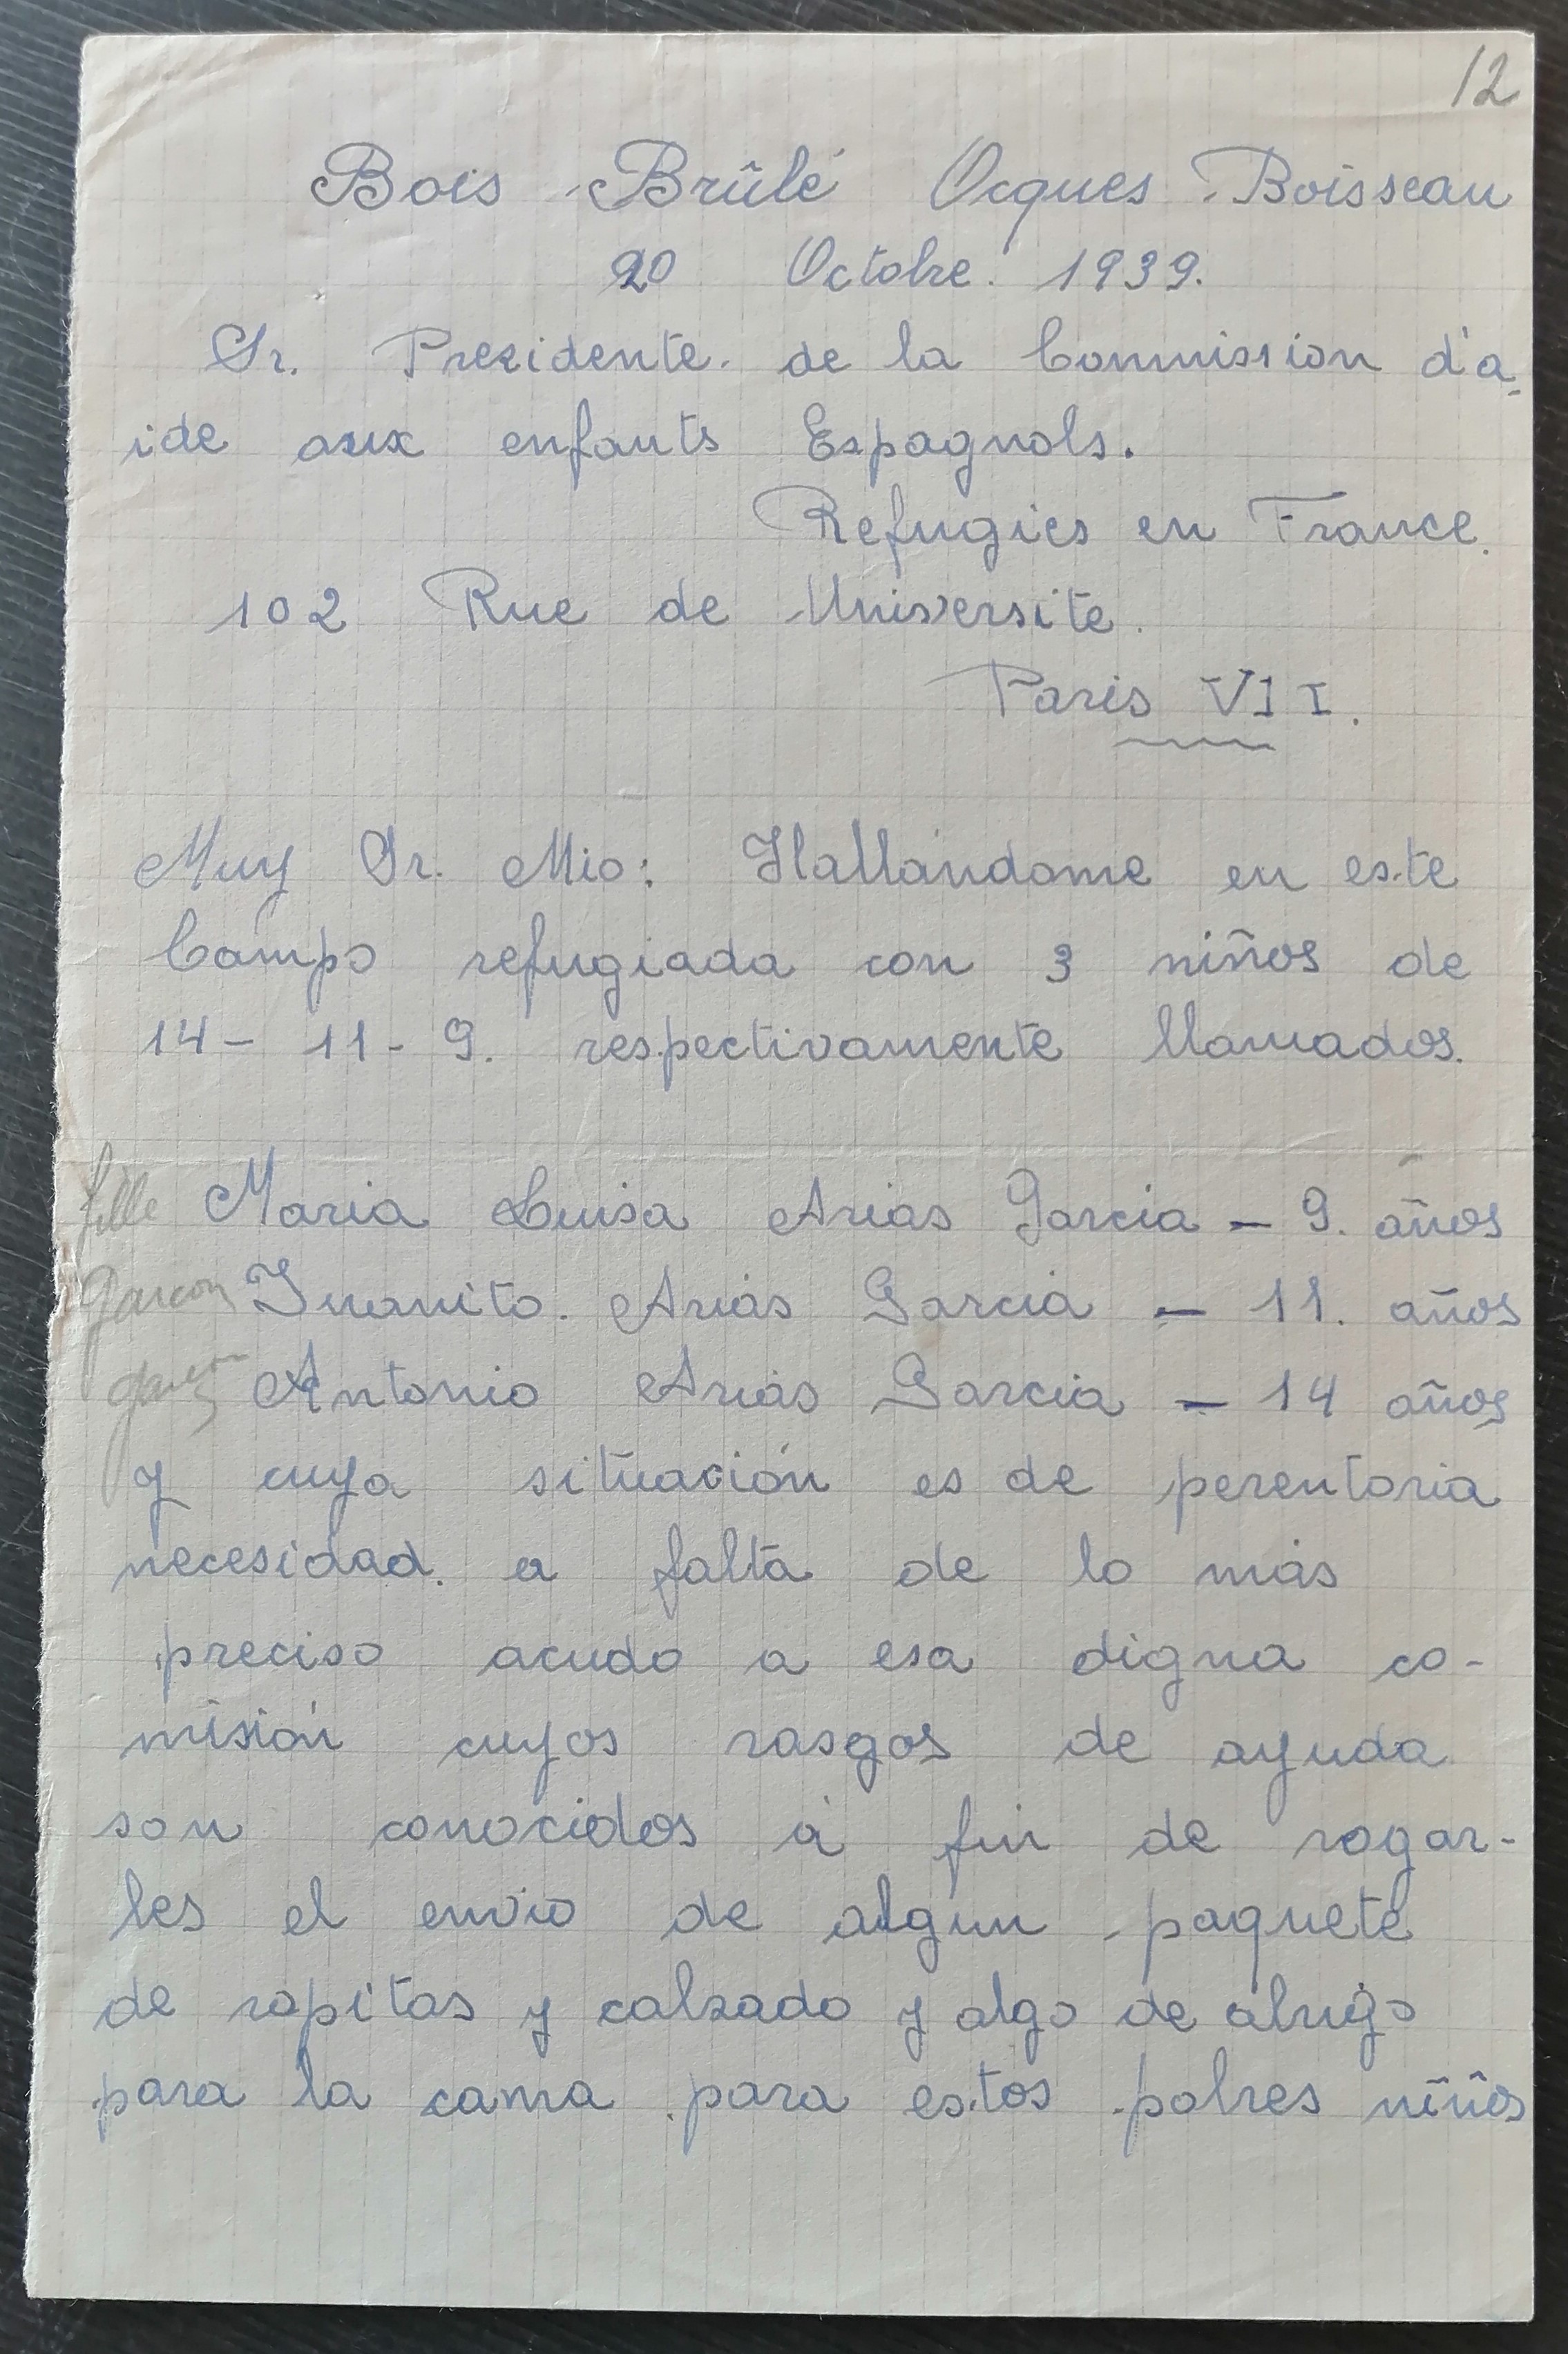 12
Bois Brûlé Ocques Boisseau
20 Octobre. 1939.
Sr. Prezidente. de la Commission d'a-
ide aux enfants Espagnols.
Refugies en France.
102 Rue de Universite.
Paris VII.
Muy Sr. Mio: Hallándome en este
Campo refugiada con 3 niños de
14- 11- 9. respectivamente llamados.
fille Maria Luisa Arias Garcia - 9. años
garcon Juanito. Arias Garcia - 11. años
garcon Antonio Arias Garcia - 14 años
y cuya situación es de perentoria
necesidad. a falta de lo más
preciso acudo a esa digna co-
misión cuyos rasgos de ayuda
son conocidos á fin de rogar-
les el envio de algun paquete
de ropitas y calzado y algo de abrigo
para la cama para estos pobres niños